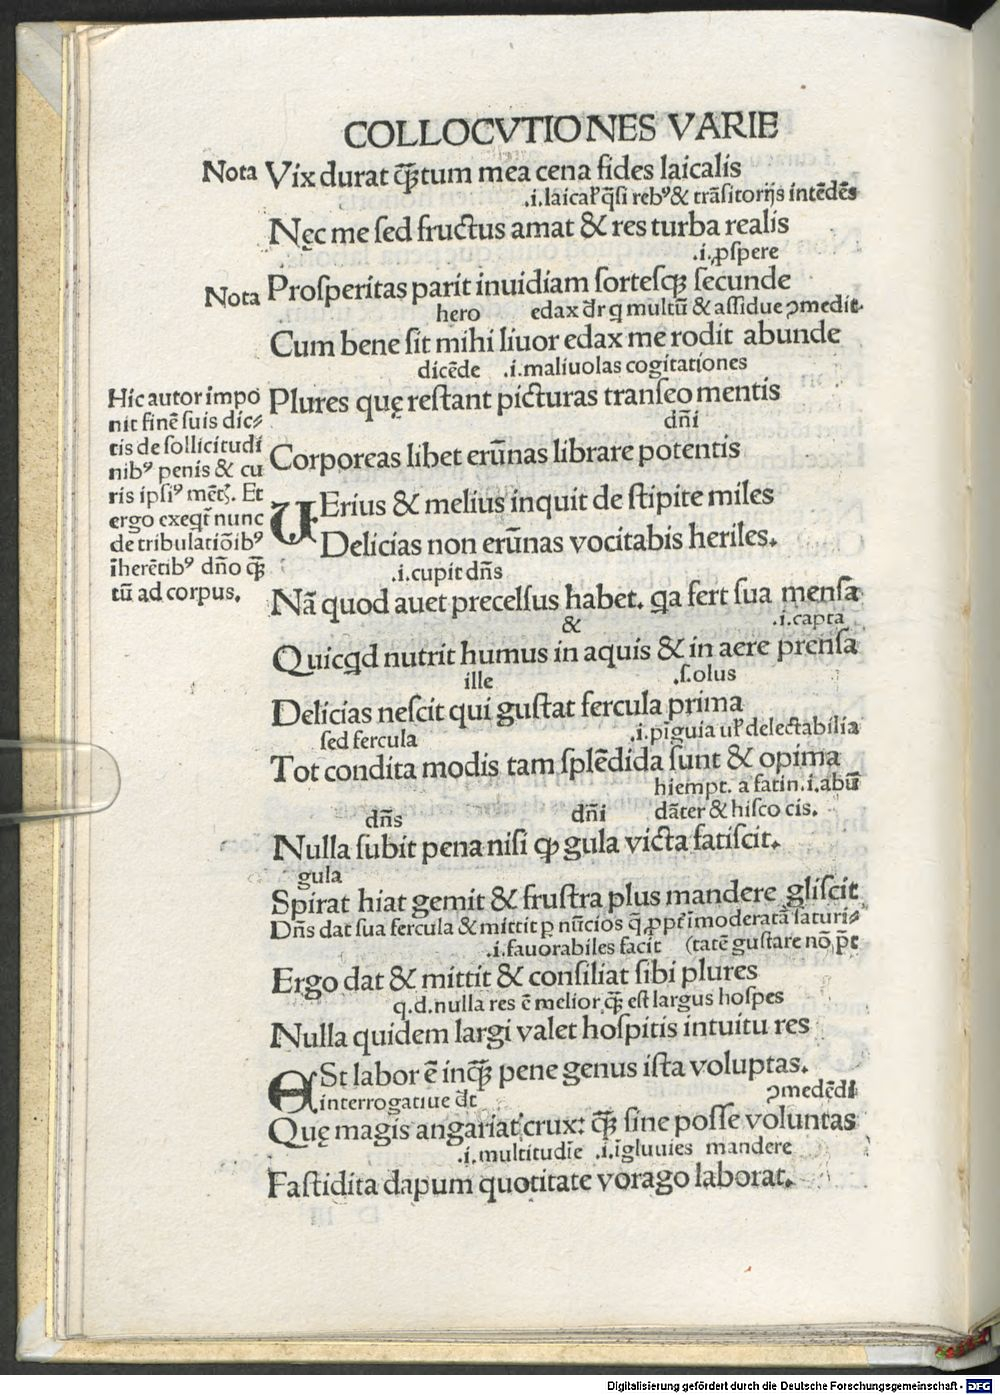 COLLOCVTIONES VARIE
Nota Vix durat q̃ꝫtum mea cena fides laicalis
.i.laical̕ q̃si rebꝰ & trãsitorijs intẽdẽs
Nęc me sed fructus amat & res turba realis
.i.ꝓspere
Nota Prosperitas parit inuidiam sortesqꝫ secunde
hero edax d̃r q multũ & assidue ꝯmedit.
Cum bene sit mihi liuor edax me rodit abunde
dicẽde .i.maliuolas cogitationes
Plures quę restant picturas transeo mentis
dñi
Corporeas libet erũnas librare potentis
Hic autor impo
nit finẽ suis dic⸗
tis de sollicitudi
nibꝰ penis & cu
ris ipsiꝰ mẽtꝭ. Et
ergo exeqt̃ nunc
de tribulatiõibꝰ
ĩherẽtibꝰ dño q̃ꝫ
tũ ad corpus.
VErius & melius inquit de stipite miles
Delicias non erũnas vocitabis heriles.
.i.cupit dñs
Nã quod auet precelsus habet. qa fert sua mensa
& .i.capta
Quicqd nutrit humus in aquis & in aere prensa
ille .s.olus
Delicias nescit qui gustat fercula prima
sed fercula .i.pĩguia ul̕ delectabilia
Tot condita modis tam splẽdida sunt & opima
hiempt. a fatin.i.abũ
dñs dñi dãter & hisco cis.
Nulla subit pena nisi ꝙ gula victa fatiscit.
gula
Spirat hiat gemit & frustra plus mandere gliscit
Dñs dat sua fercula & mittit ꝑ nũcios q̃ ꝓpt̃ ĩmoderatã saturi⸗
.i.fauorabiles facit (tatẽ gustare nõ p̃t
Ergo dat & mittit & consiliat sibi plures
q.d.nulla res ẽ melior q̃ꝫ est largus hospes
Nulla quidem largi valet hospitis intuitu res
ESt labor ẽ inq̃ꝫ pene genus ista voluptas.
interrogatiue d̃t ꝯmedẽdi
Quę magis angariat crux: q̃ꝫ sine posse voluntas
.i.multitudĩe .i.ĩgluuies mandere
Fastidita dapum quotitate vorago laborat.
Digitalisierung gefördert durch die Deutsche Forschungsgemeinschaft - DFG